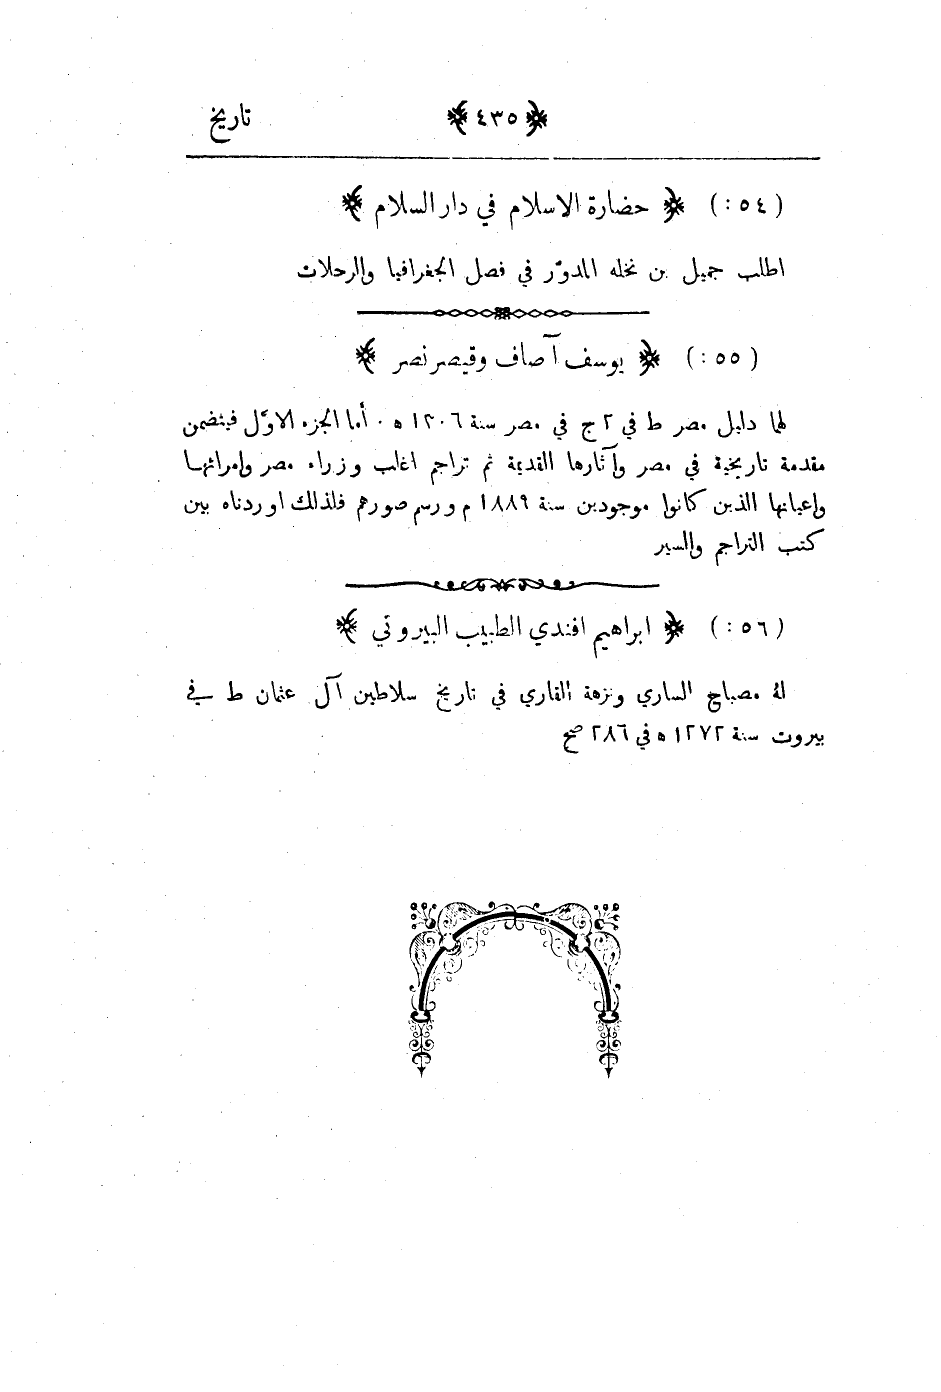 ﴿ ٤٣٥ ﴾ تاريخ
(٥٤ :) ﴿ حضارة الاسلام في دار السلام ﴾
اطلب جميل بن نخله المدوّر في فصل الجغرافيا والرحلات
(٥٥ :) ﴿ يوسف آصاف وقيصر نصر ﴾
لهما دليل مصر ط في ٢ ج في مصر سنة ١٣٠٦ ه ٠ أما الجزء الاوّل فيتضمن
مقدمة تاريخية في مصر وآثارها القديمة ثم تراجم اغلب وزراء مصر وامرائها
واعيانها الذين كانوا موجودين سنة ١٨٨٩ م ورسم صورهم فلذلك اوردناه بين
كتب التراجم والسير
(٥٦ :) ﴿ ابراهيم افندي الطبيب البيروتي ﴾
لهُ مصباح الساري ونزهة القاري في تاريخ سلاطين آل عثمان ط في
بيروت سنة ١٢٧٢ ه في ٢٨٦ صح